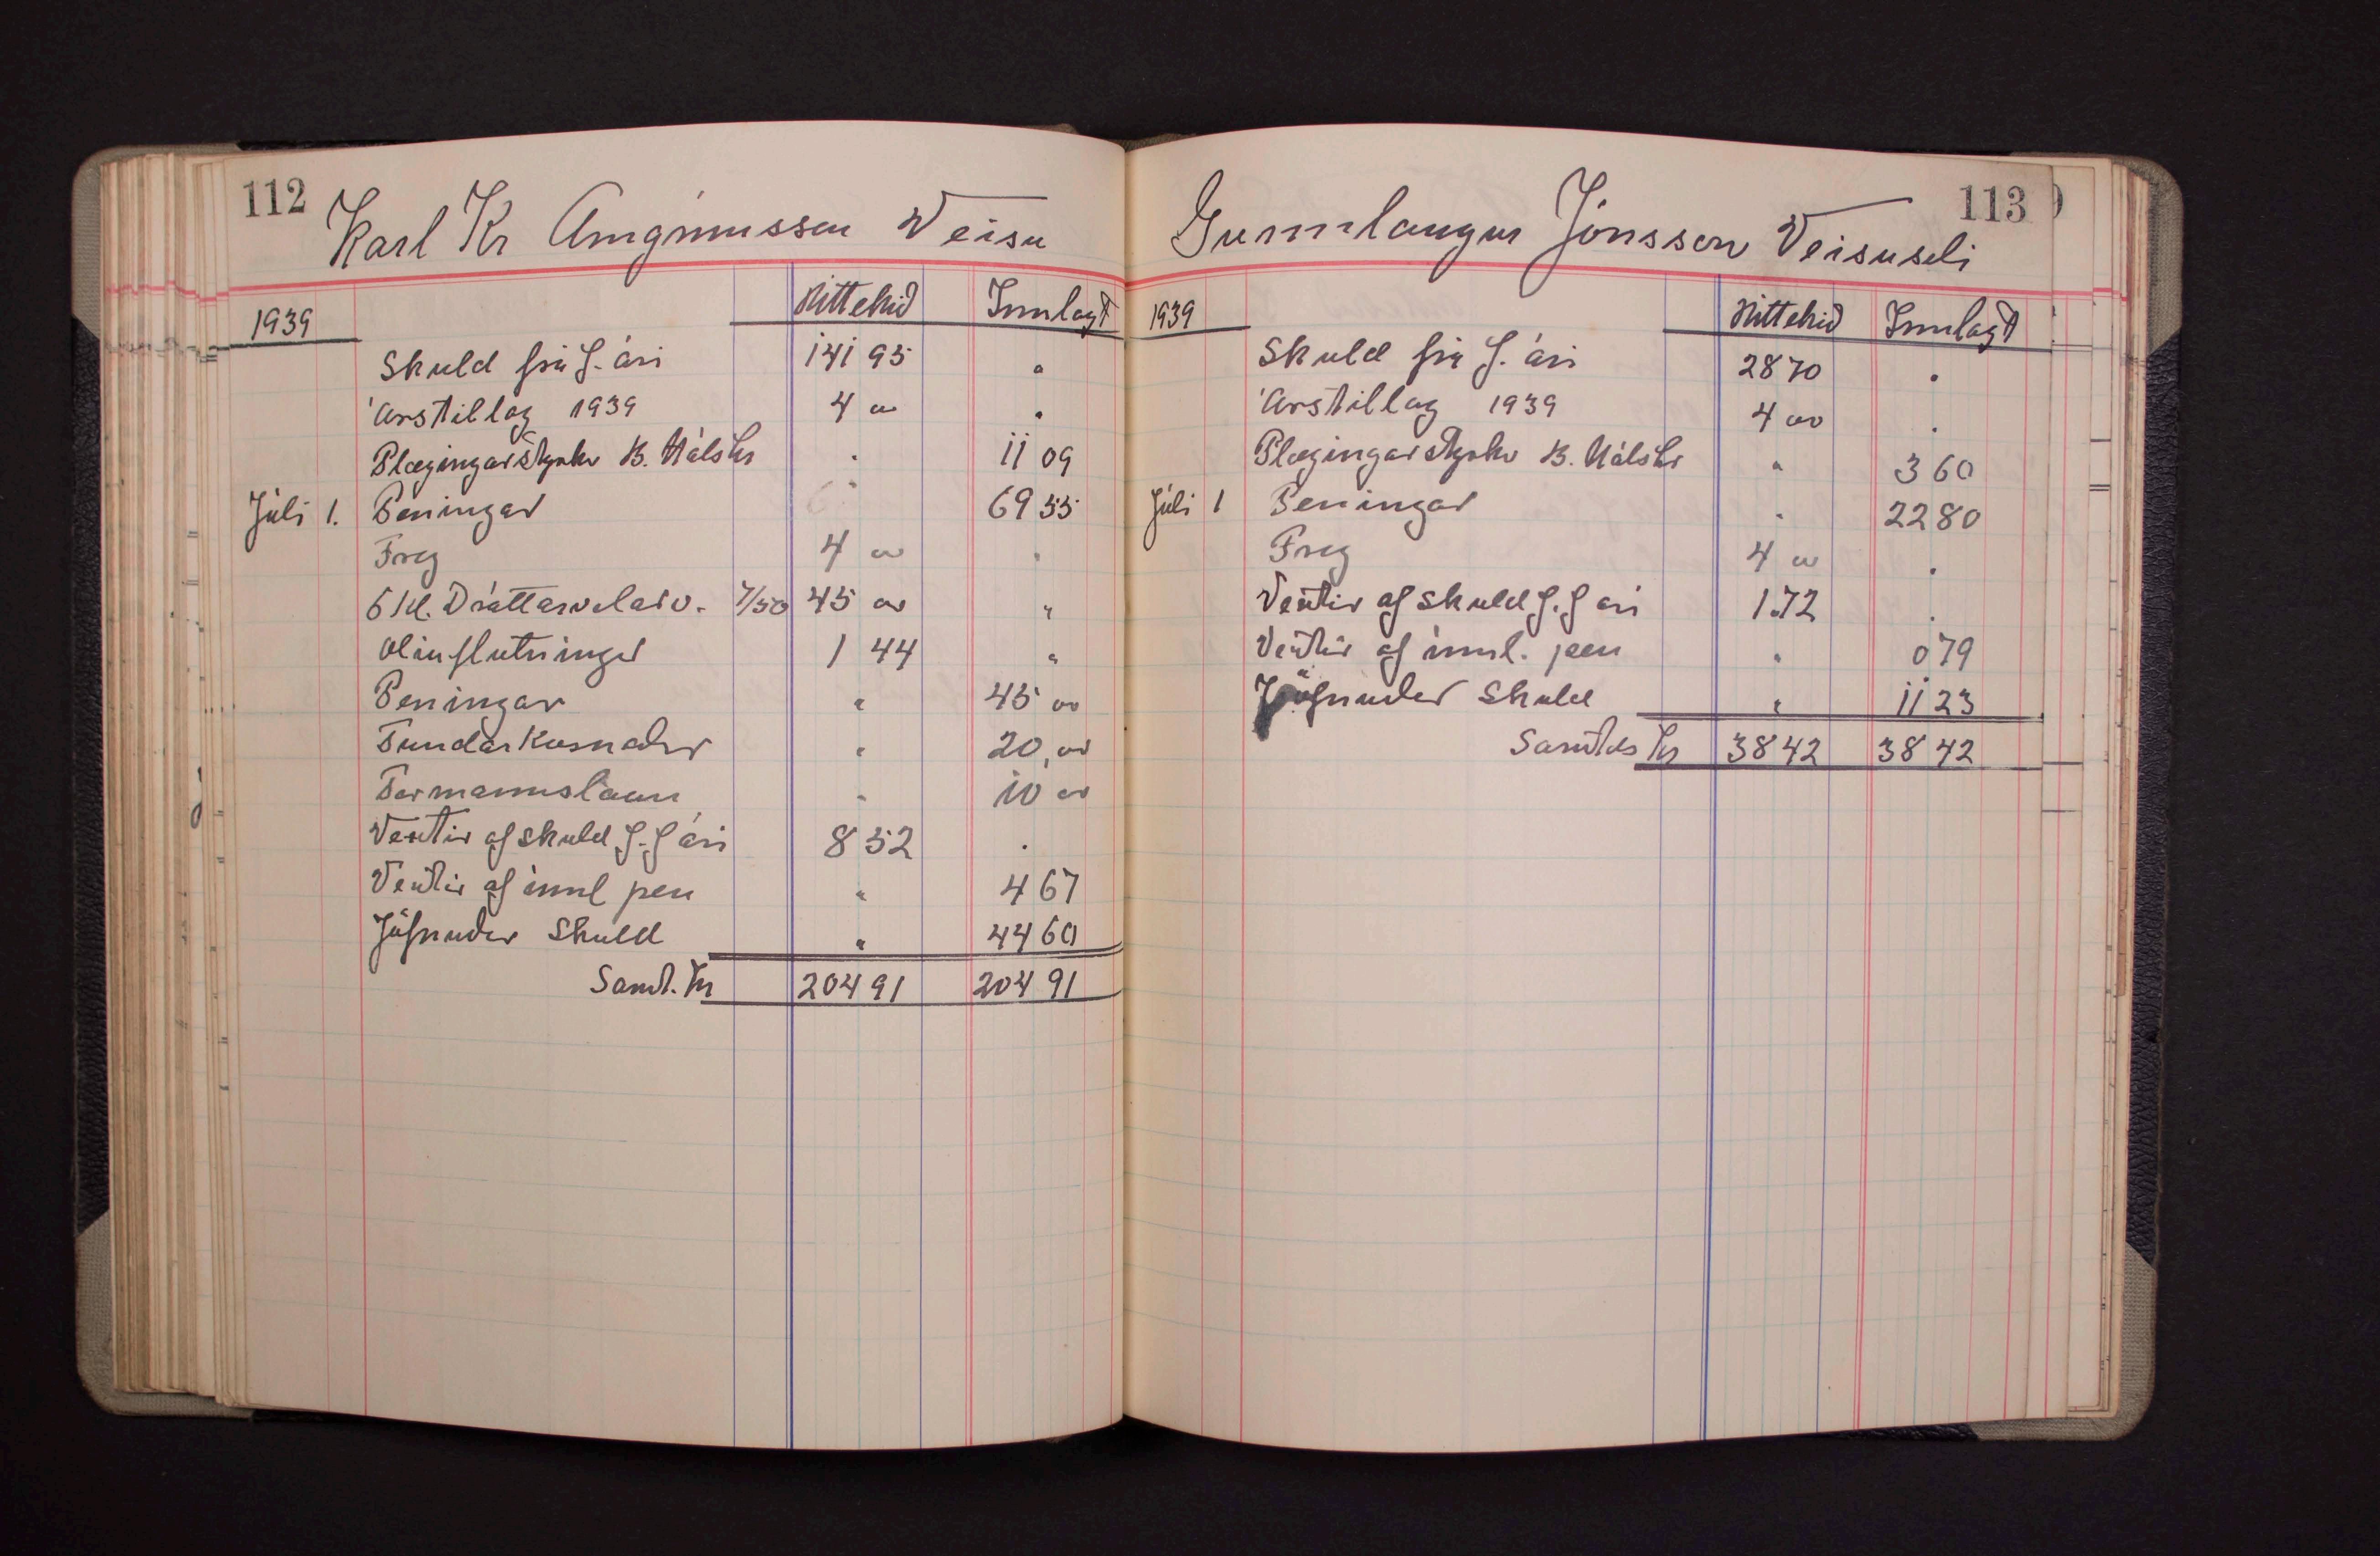 112
Karl Kr Arngrímsson Veisu
1939 Úttekið Innlagt
Skuld frá f. ári 141 95 "
Árstillag 1939 4 00 "
Plægingarstyrkur B. Hálshr " 11 09
Júlí 1. Peningar " 69 55
Freg 4 00 "
6 kl. Dráttarvélarv. 7/50 45 00 "
Olíuflutningur 1 44 "
Peningar " 45 00
Fundarkosnaður " 20,00
Formannslaun " 10 00
Vextir af skuld f. f ári 8 52 "
Vextir af innl pen " 4 67
Jöfnuður Skuld " 44 60
Samt. Kr 204 91 204 91
113
Gunnlaugur Jónsson Veisuseli
1939 Úttekið Innlagt
Skuld frá f. ári 28 70 "
Árstillag 1939 4 00 "
Plægingarstyrkur B. Hálshr " 3 60
Júlí 1 Peningar " 22 80
Freg 4 00 "
Vextir af skuld f. f ári 1.72 "
Vextir af innl. pen " 0 79
Jöfnuður Skuld " 11 23
Samtals Kr 38 42 38 42